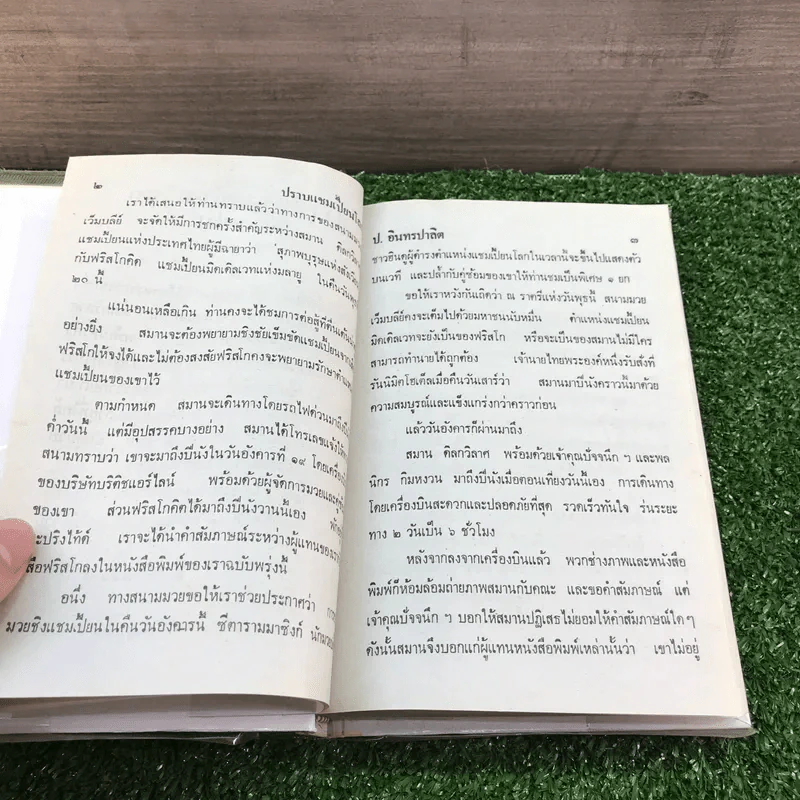 ๒
ปราบแชมเปี้ยนโ
เราได้เสนอให้ท่านทราบแล้วว่าทางการของสนามม
เว็มบลีย์ จะจัดให้มีการชกครั้งสำคัญระหว่างสมาน ดิลกวิล
แชมเปี้ยนแห่งประเทศไทยผู้มีฉายาว่า 'สุภาพบุรุษแห่งสังเวีย
กับฟริสโกคิด แชมเปี้ยนมิดเดิลเวทแห่งมลายู ในคืนวันพุธ
๒๐ นี้
แน่นอนเหลือเกิน ท่านคงจะได้ชมการต่อสู้ที่ตื่นเต้น
อย่างยิ่ง สมานจะต้องพยายามชิงชัยเข็มขัดแชมเปี้ยนจาก
ฟริสโกให้จงได้และไม่ต้องสงสัยฟริสโกคงจะพยายามรักษาตำแ
แชมเปี้ยนของเขาไว้
ตามกำหนด สมานจะเดินทางโดยรถไฟด่วนมาถึงปี
ค่ำวันนี้ แต่มีอุปสรรคบางอย่าง สมานได้โทรเลขแจ้งให้
สนามทราบว่า เขาจะมาถึงปีนังในวันอังคารที่ ๑๙ โดยเครื่อง
ของบริษัทบริติชแอร์ไลน์ พร้อมด้วยผู้จัดการมวยและคู่ซ้
ของเขา ส่วนฟริสโกคิดได้มาถึงปีนังวานนี้เอง
ะปริงไท้ด์ เราจะได้นำคำสัมภาษณ์ระหว่างผู้แทนของเรา
สือฟริสโกลงในหนังสือพิมพ์ของเราฉบับพรุ่งนี้
อนึ่ง ทางสนามมวยขอให้เราช่วยประกาศว่า การ
มวยชิงแชมเปี้ยนในคืนวันอังคารนี้ ซีตารามมาซิงก์ นักมวย
ป. อินทรปาลิต
๓
ชาวฮินดูผู้ดำรงตำแหน่งแชมเปี้ยนโลกในเวลานี้จะขึ้นไปแสดงตัว
บนเวที และปล้ำกับคู่ซ้อมของเขาให้ท่านชมเป็นพิเศษ ๑ ยก
ขอให้เราหวังกันเถิดว่า ณ ราตรีแห่งวันพุธนี้ สนามมวย
เว็มบลีย์คงจะเต็มไปด้วยมหาชนนับหมื่น ตำแหน่งแชมเปี้ยน
มิดเดิลเวทจะยังเป็นของฟริสโก หรือจะเป็นของสมานไม่มีใคร
สามารถทำนายได้ถูกต้อง เจ้านายไทยพระองค์หนึ่งรับสั่งที่
รันนิมิดโฮเต็ลเมื่อคืนวันเสาร์ว่า สมานมาปีนังคราวนี้มาด้วย
ความสมบูรณ์และแข็งแกร่งกว่าคราวก่อน
แล้ววันอังคารก็ผ่านมาถึง
สมาน ดิลกวิลาศ พร้อมด้วยเจ้าคุณปัจจนึก ฯ และพล
นิกร กิมหงวน มาถึงปีนังเมื่อตอนเที่ยงวันนั้นเอง การเดินทาง
โดยเครื่องบินสะดวกและปลอดภัยที่สุด รวดเร็วทันใจ ร่นระยะ
ทาง ๒ วันเป็น ๖ ชั่วโมง
หลังจากลงจากเครื่องบินแล้ว พวกช่างภาพและหนังสือ
พิมพ์ก็ห้อมล้อมถ่ายภาพสมานกับคณะ และขอคำสัมภาษณ์ แต่
เจ้าคุณปัจจนึก ฯ บอกให้สมานปฏิเสธไม่ยอมให้คำสัมภาษณ์ใด ๆ
ดังนั้นสมานจึงบอกแก่ผู้แทนหนังสือพิมพ์เหล่านั้นว่า เขาไม่อยู่